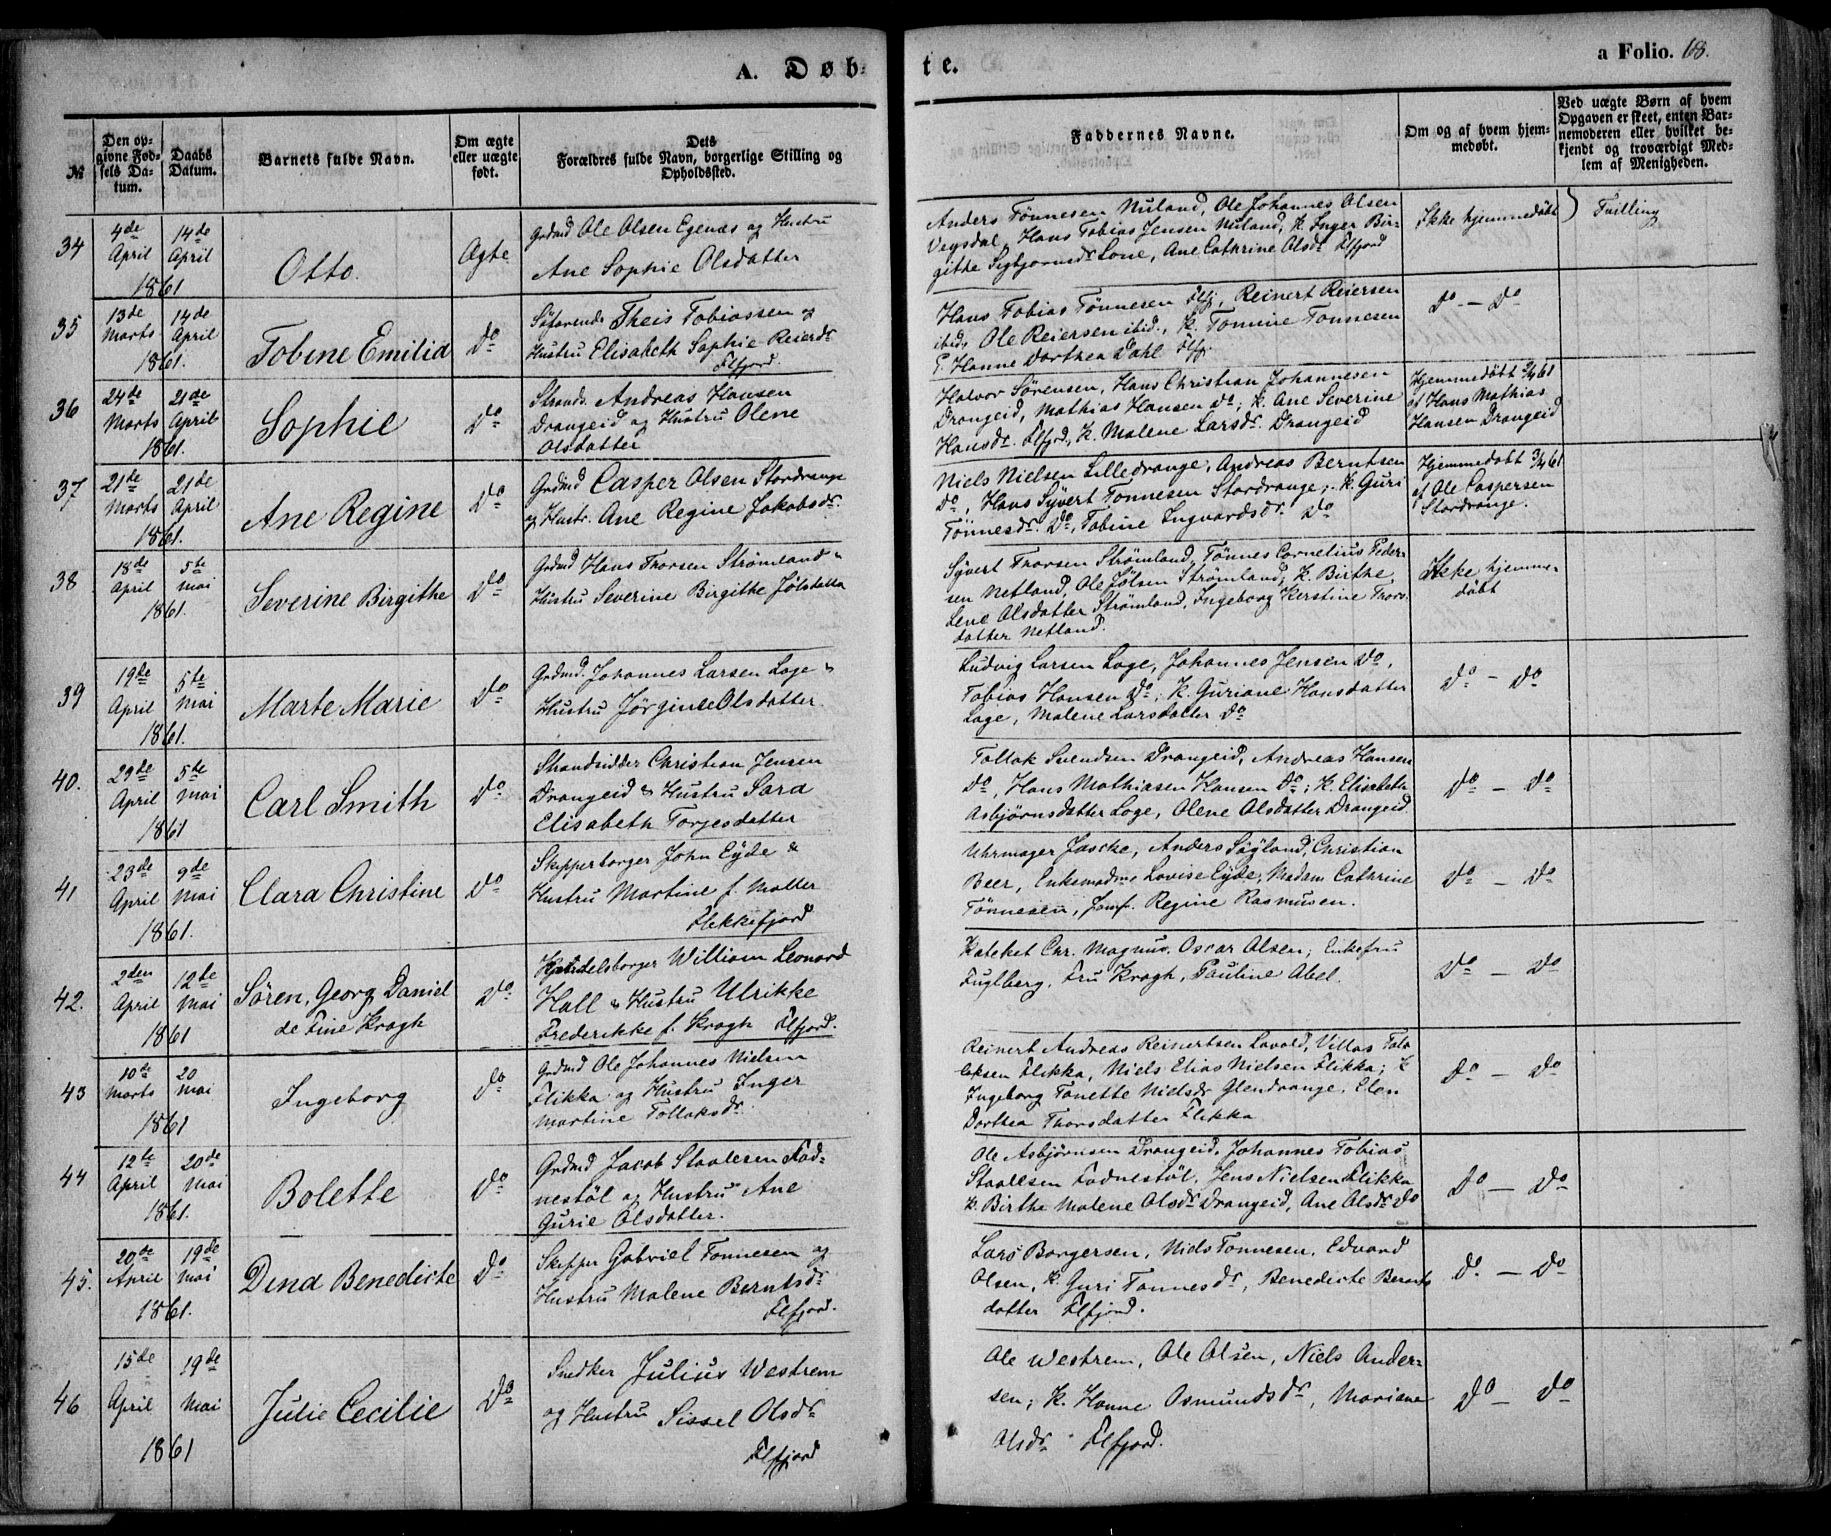 A. Døbte.
a Folio. 68.
№
Den opgivne Fødsels Datum.
Daabs Datum.
Barnets fulde Navn.
Om ægte eller uægte født.
Dets Forældres fulde Navn, borgerlige Stilling og Opholdssted.
Faddernes Navne.
Om og af hvem hjemmedøbt.
Ved uægte Børn af hvem Opgaven er skeet, enten Barnemoderen eller hvilket bekjendt og troværdigt Medlem af Menigheden.
34
4de April 1861
14de April
Otto.
Ægte
Grdmd Ole Olsen Egenæs og Hustru
Ane Sophie Olsdatter
Anders Tönnesen Nuland, Ole Johannes Olsen
Veysdal, Hans Tobias Jensen Nuland, K. Inger Bir-
gitte Sigbjørnsdr Lone, Ane Cathrine Olsdr Flfjord
Ikke hjemmedøbt
Tvilling
35
13de Marts 1861.
14de April
Tobine Emilia
Do
Søfarende Theis Tobiassen og
Hustru Elisabeth Sophie Reiersdr
Flfjord.
Hans Tobias Tönnesen Flfj, Reinert Reiersen
ibid, Ole Reiersen ibid., K. Tonnine Tonnesen
Hanne Dorthea Dahl Flfj.
Do - Do
36
24de Marts 1861.
21de April
Sophie
Do
Strands. Andreas Hansen
Drangeid og Hustru Olene
Olsdatter
Halvor Sørensen, Hans Christian Johannesen
Drangeid, Mathias Hansen Do; K. Ane Severine
Hansdr. Flfjord, K. Malene Larsdr. Drangeid
Hjemmedøbt 2/4 61
af Hans Mathias
Hansen Drangeid
37
21de Marts 1861.
21de April
Ane Regine
Do
Grdmd Casper Olsen Stordrange
og Hustr. Ane Regine Jakobsdr.
Niels Nielsen Lilledrange, Andreas Berntsen
Do, Hans Syvert Tonnesen Stordrange; K. Guri
Tönnesdr. Do, Tobine Ingvardsdr Do
Hjemmedøbt 3/4 61
af Ole Caspersen
Stordrange.
38
18de April 1861.
5te Mai
Severine Birgithe
Do
Grdmd Hans Thorsen Strømland &
Hustru Severine Birgithe Jølsdatter
Syvert Thorsen Strømland, Tönnes Cornelius Peder-
sen Netland, Ole Jølsen Strømland, K. Birthe
Lene Olsdatter Strømland, Ingeborg Kerstine Thors-
datter Netland.
Ikke hjemme-
døbt
39
19de April 1861.
5te Mai
Marte Marie
Do
Grdmd. Johannes Larsen Loge &
Hustru Jørgine Olsdatter
Ludvig Larsen Loge, Johannes Jensen Do,
Tobias Hansen Do; K. Guriane Hansdatter
Loge, Malene Larsdatter Do
Do - Do
40.
29de April 1861
5te Mai
Carl Smith
Do
Strandsidder Christian Jensen
Drangeid & Hustru Sara
Elisabeth Torjesdatter
Tollak Svendsen Drangeid, Andreas Hansen
Do, Hans Mathiasen Hansen Do; K. Elisabeth
Asbjørnsdatter Loge, Olene Olsdatter Drangeid.
Do - Do
41
23de April 1861.
9de Mai
Clara Christine
Do
Skipperborger John Eyde &
Hustru Martine f. Møller
Flekkefjord
Uhrmager Jascke, Anders Søyland, Christian
Beer, Enkemadme Lovise Eyde, Madam Cathrine
Tönnesen, Jomf. Regine Rasmusen.
Do - Do
42.
2den April 1861
12te Mai
Søren, Georg Daniel
de Fine Kragh
Do
Handelsborger William Leonard
Hall & Hustru Ulrikke
Frederikke f. Kragh Flfjord.
Kateket Chr. Magnus. Oscar Olsen; Enkefru
Fuglberg, Fru Kragh, Pauline Abel.
Do - Do
43
10de Marts 1861
20 Mai
Ingeborg
Do
Grdmd Ole Johannes Nielsen
Flikka og Hustru Inger
Martine Tollaksdr
Reinert Andreas Reinertsen Lavold, Villas Tol-
laksen Flikka, Niels Elias Nielsen Flikka; K
Ingeborg Tonette Nielsdr Glendrange, Elen
Dorthea Thorsdatter Flikka
Do - Do
44
12te April 1861.
20de Mai
Bolette
Do
Grdmd Jacob Staalesen Fod-
nestöl og Hustru Ane
Gurie Olsdatter.
Ole Asbjørnsen Drangeid, Johannes Tobias
Staalesen Fodnestøl, Jens Nielsen Flikka
K. Birthe Malene Olsdr Drangeid, Ane Olsdr Do
Do - Do
45.
20de April 1861.
19de Mai
Dina Benedicte
Do
Skipper Gabriel Tonnesen og
Hustru Malene Berntsdr
Flfjord.
Lars Borgersen, Niels Tonnesen, Edvard
Olsen, K. Guri Tonnesdr, Benedicte Bernts
datter Flfjord.
Do - Do
46
15de April 1861
19de Mai
Julie Cecilie
Do
Snedker Julius Westrem
og Hustru Sissel Olsdr
Flfjord
Ole Westrem, Ole Olsen, Niels Ander-
sen; K. Hanne Osmundsdr, Mariane
Olsdr Flfjord.
Do - Do